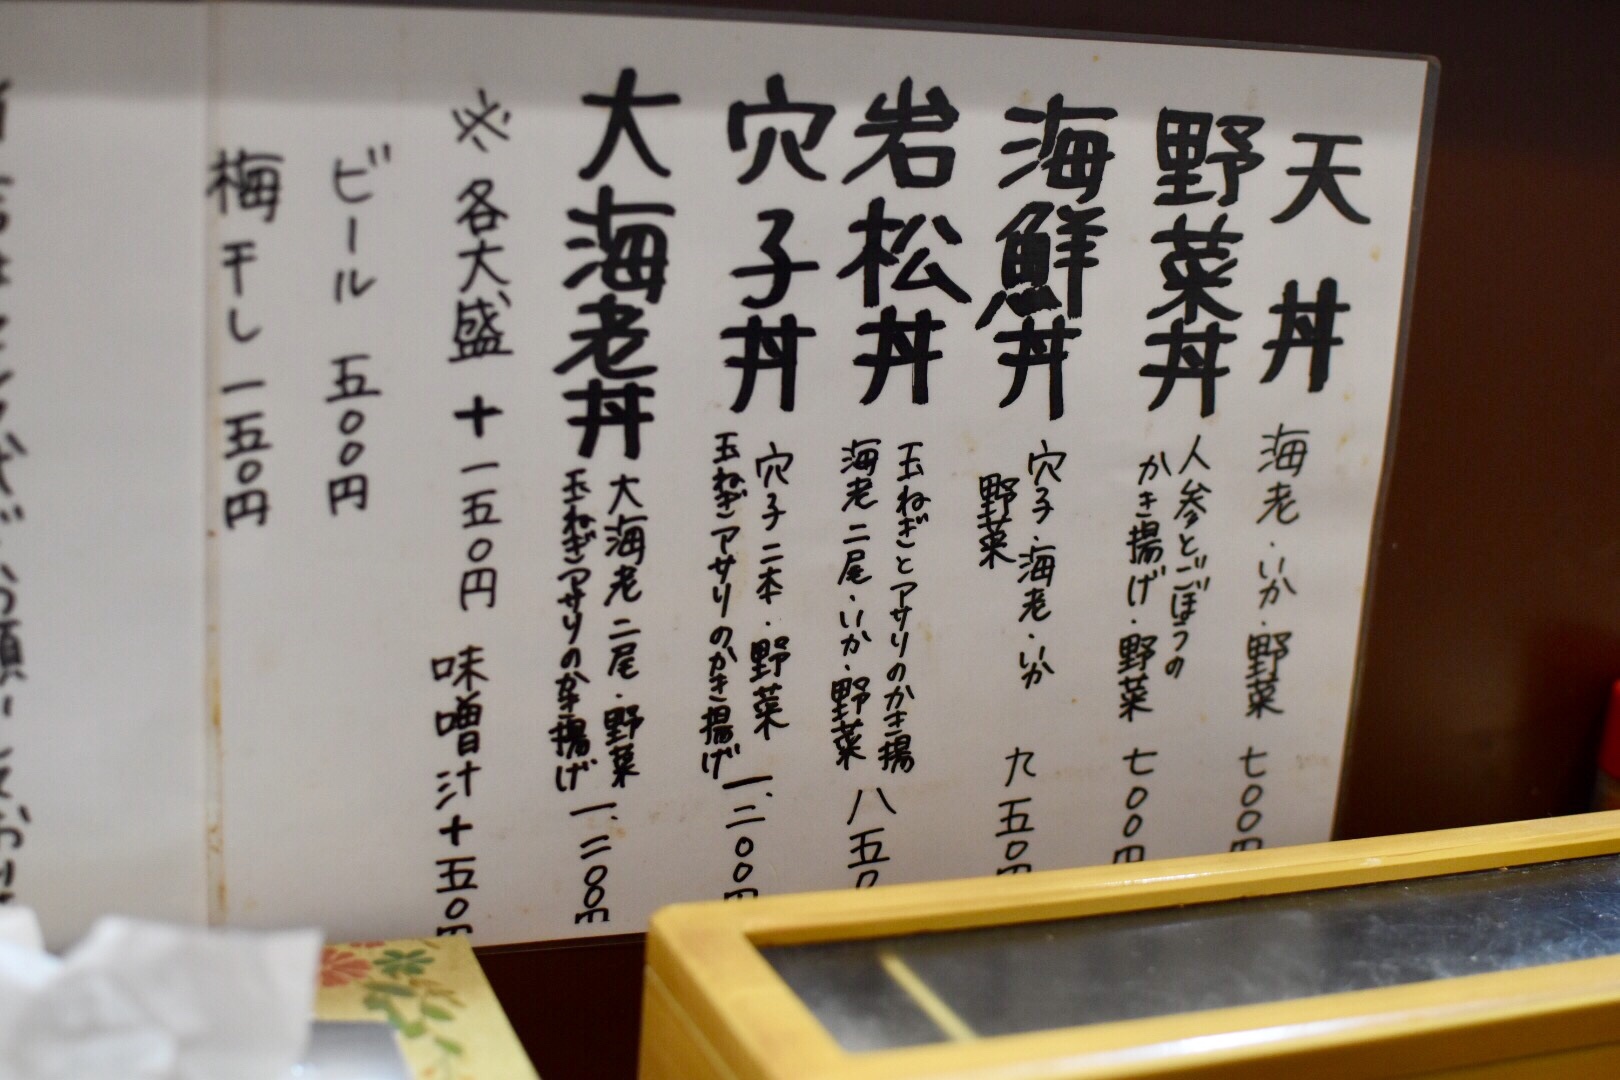 天丼 海老・いか・野菜 七〇〇円
野菜丼 人参とごぼうの
かき揚げ・野菜 七〇〇円
海鮮丼 穴子・海老・いか
野菜 九五〇円
岩松丼 玉ねぎとアサリのかき揚
海老二尾・いか・野菜 八五〇
穴子丼 穴子二本・野菜
玉ねぎアサリのかき揚げ 一、二〇〇円
大海老丼 大海老二尾・野菜
玉ねぎアサリのかき揚げ 一、二〇〇円
※各大盛+一五〇円 味噌汁+五〇円
ビール 五〇〇円
梅干し 一五〇円